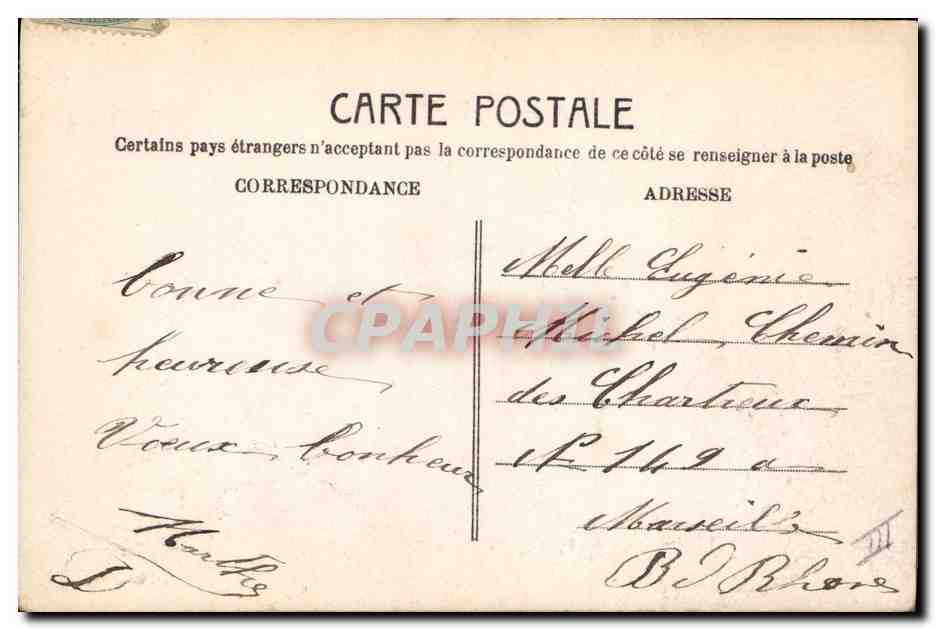 CARTE POSTALE
Certains pays étrangers n'acceptant pas la correspondance de ce côté se renseigner à la poste
CORRESPONDANCE
bonne et
heureuse
Vœux bonheur
Marthe
D
ADRESSE
Melle Eugénie
Michel Chemin
des Chartreux
N° 149 a
Marseille
B d Rhone
III
CPAPHIL